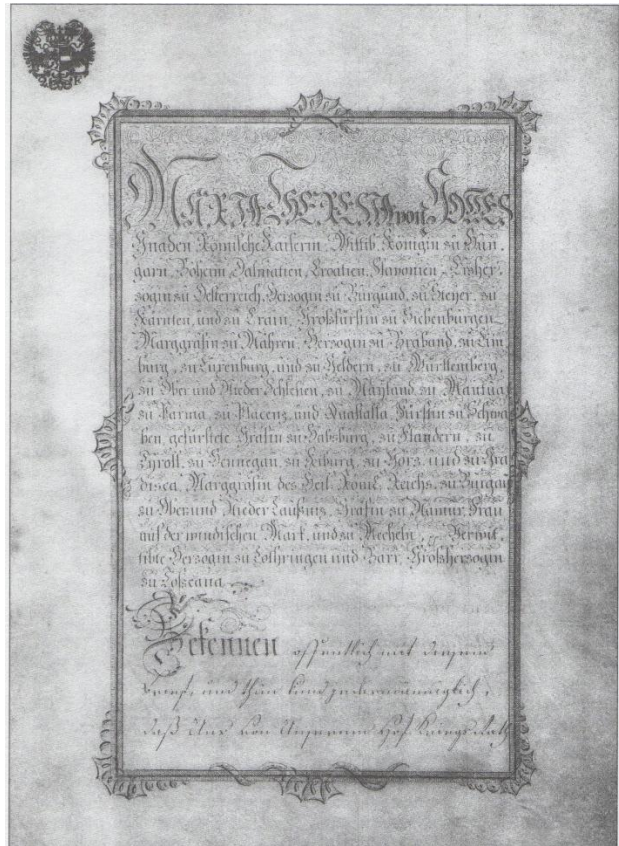 MARIA THERESIA von GOTTES
Gnaden Römische Kaiserin, Wittib, Königin zu Hun,
garn, Böheim, Dalmatien, Croatien, Slavonien, Erzher,
zogin zu Oesterreich, Herzogin zu Burgund, zu Steyer, zu
Kärnten, und zu Crain, Großfürstin zu Siebenbürgen
Marggräfin zu Mähren, Herzogin zu Braband, zu Lim
burg, zu Luxenburg, und zu Geldern, zu Württemberg,
zu Ober und Nieder Schlesien, zu Mayland, zu Mantua,
zu Parma, zu Placenz, und Quastalla, Fürstin zu Schwa
ben, gefürstete Gräfin zu Habsburg, zu Flandern, zu
Tyroll, zu Hennegau, zu Kiburg, zu Görz, und zu Gra
disca, Marggräfin des Heil. Römis. Reichs, zu Burgau
zu Ober und Nieder Laußniz, Gräfin zu Namur, Frau
auf der windischen Mark, und zu Mecheln, Verwit,
tibte Herzogin zu Lothringen und Barr, Großherzogin
zu Toscana
Bekennen öffentlich mit diesem
Briefe, und thun kund jedermänniglich,
daß Uns von Unserem Hof Kriegs Rath